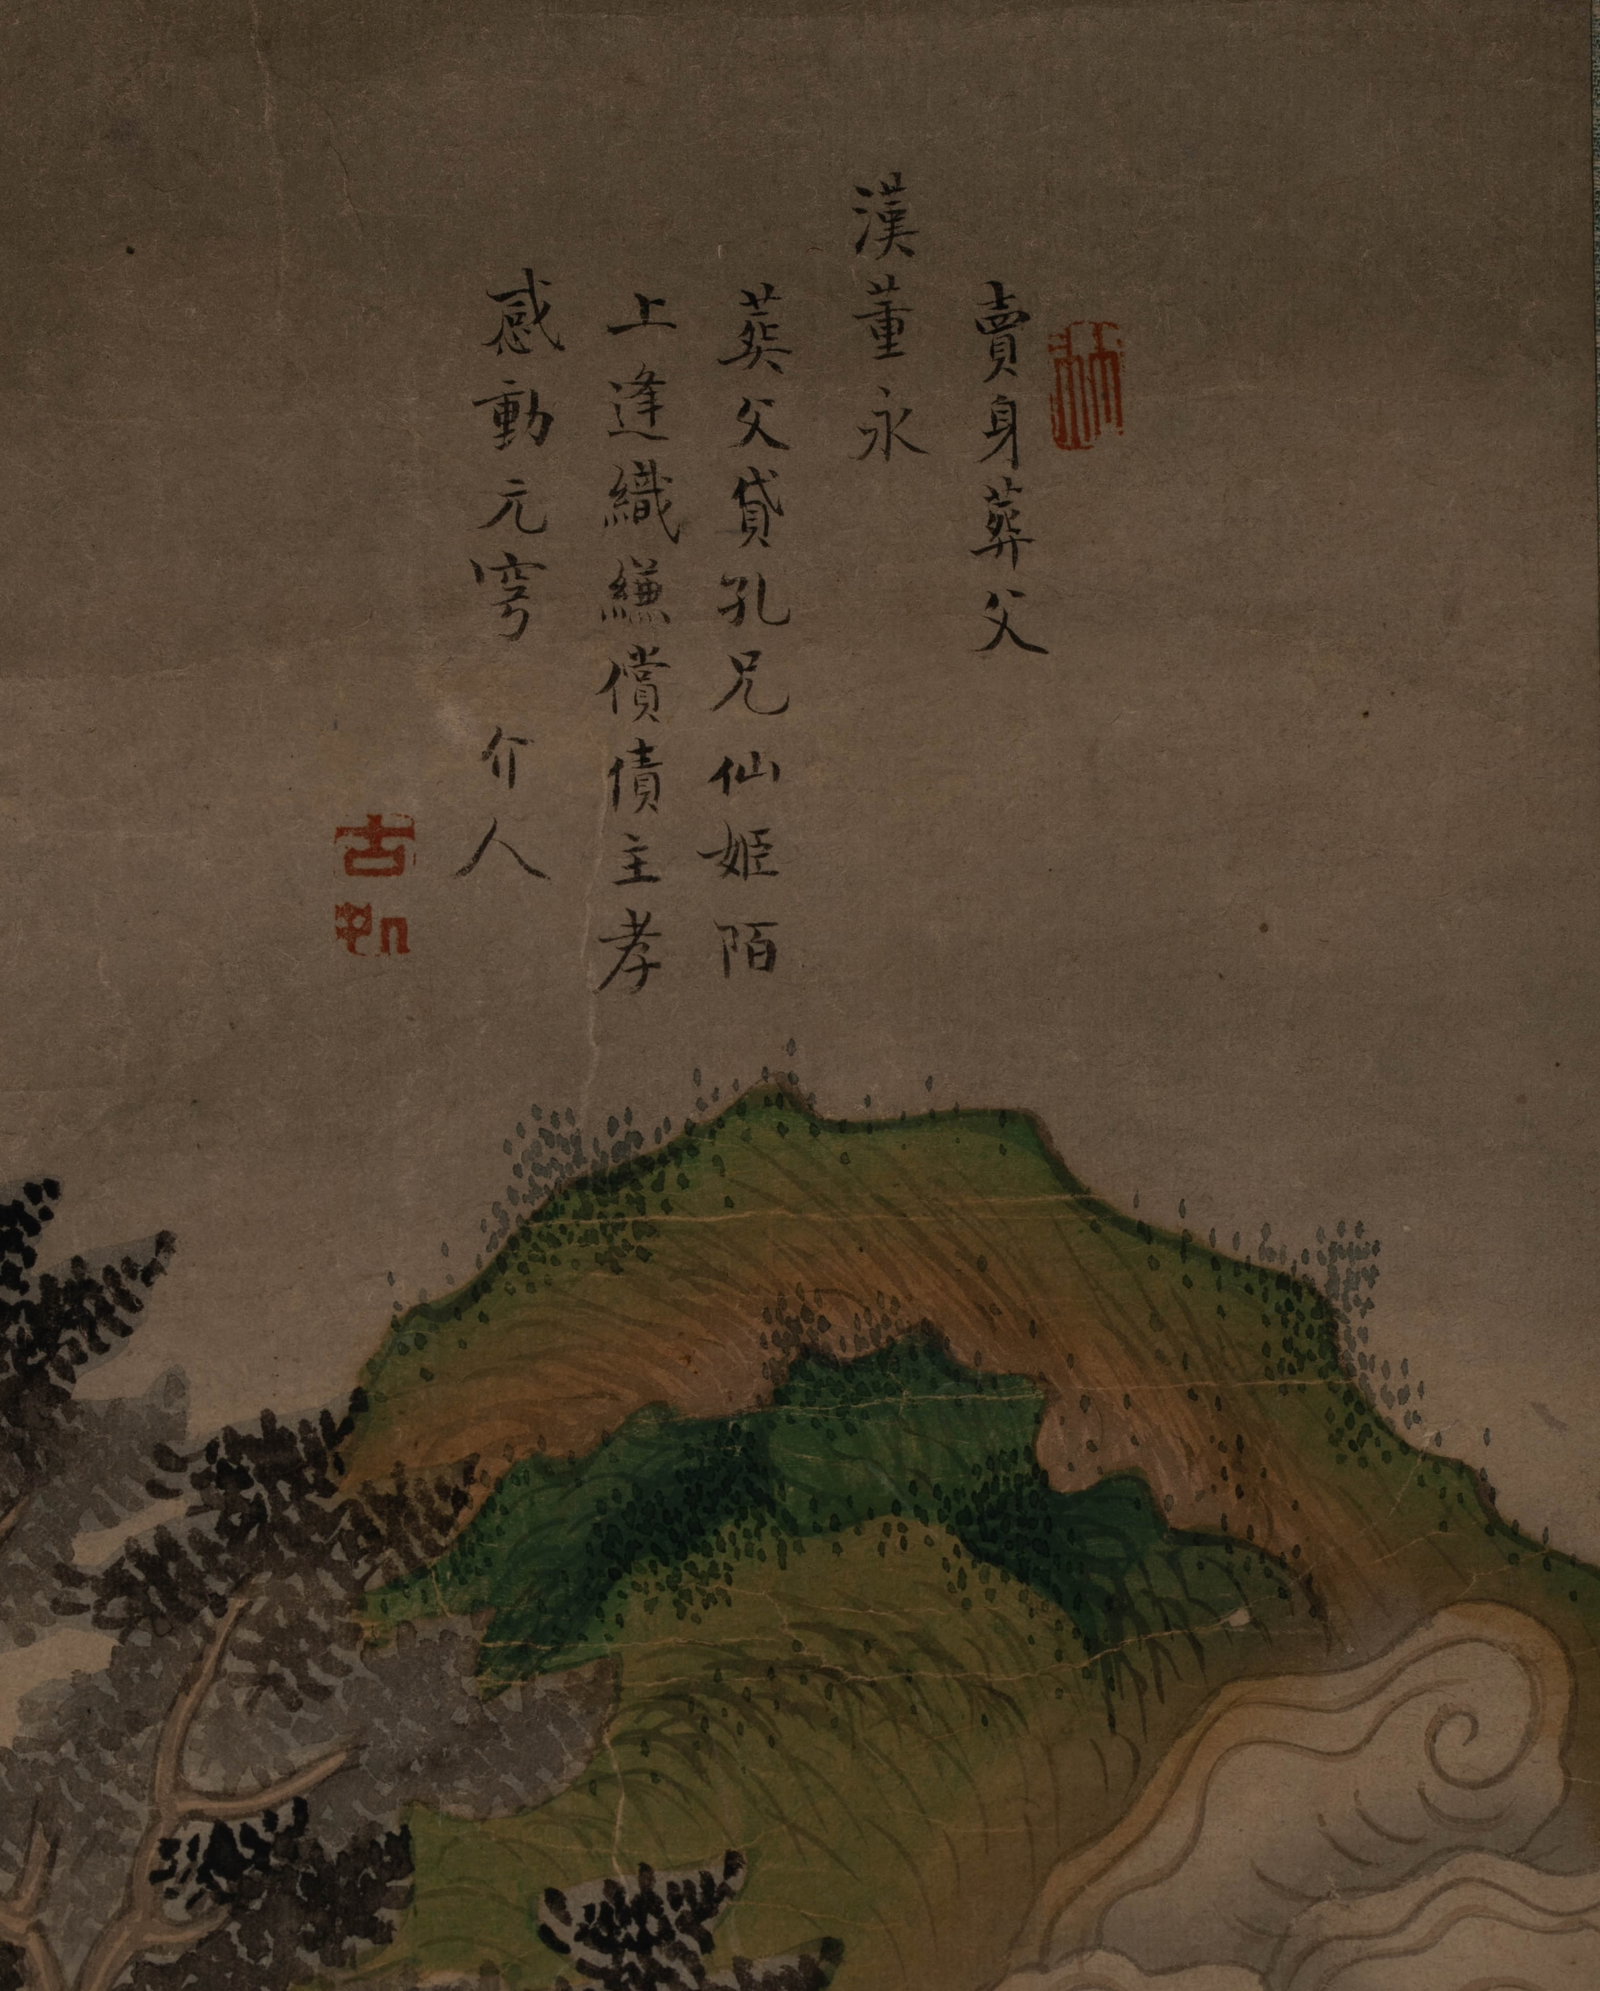 賣身葬父
漢董永
葬父貸孔兄仙姬陌
上逢織縑償債主孝
感動元穹 介人